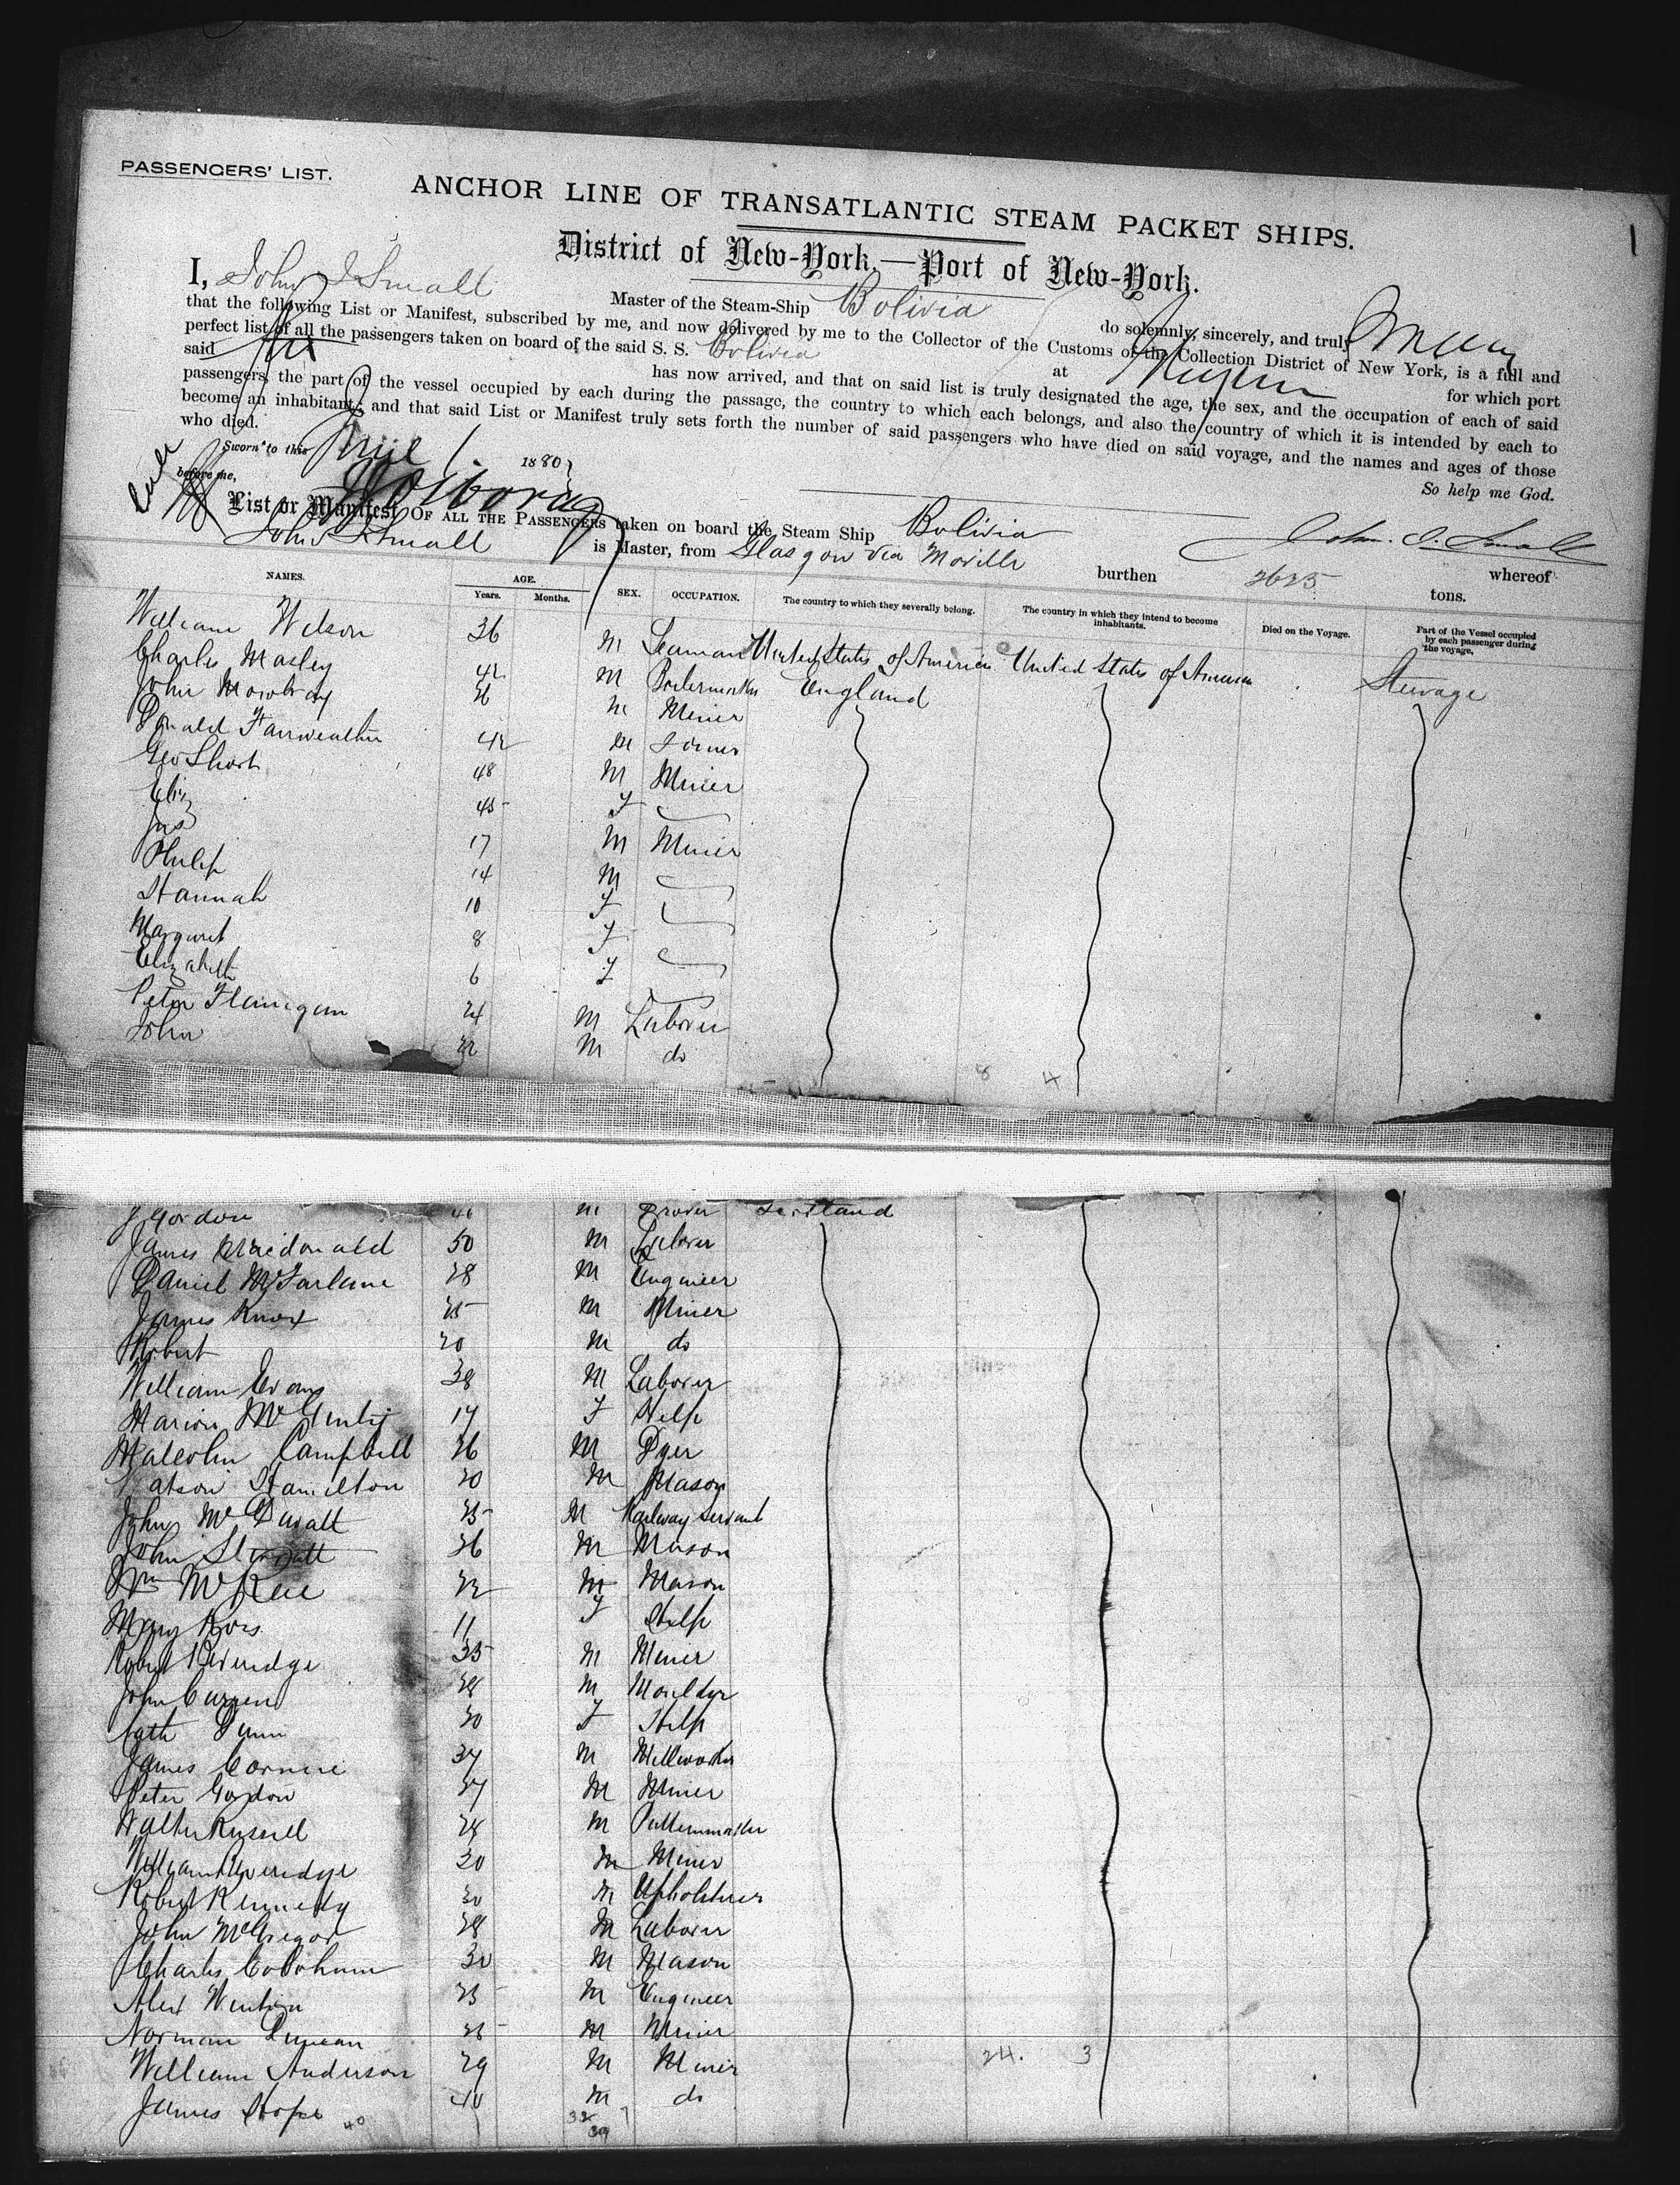 PASSENGERS' LIST.
1
ANCHOR LINE OF TRANSATLANTIC STEAM PACKET SHIPS.
District of New-York,—Port of New-York.
I, John J Small Master of the Steam-Ship Bolivia do solemnly, sincerely, and truly
that the following List or Manifest, subscribed by me, and now delivered by me to the Collector of the Customs of the Collection District of New York, is a full and
perfect list of all the passengers taken on board of the said S. S. Bolivia at for which port
said has now arrived, and that on said list is truly designated the age, the sex, and the occupation of each of said
passengers, the part of the vessel occupied by each during the passage, the country to which each belongs, and also the country of which it is intended by each to
become an inhabitant; and that said List or Manifest truly sets forth the number of said passengers who have died on said voyage, and the names and ages of those
who died.
So help me God.
Sworn to this June 1. 1880
before me,
John. J. Small
List or Manifest OF ALL THE PASSENGERS taken on board the Steam Ship Bolivia whereof
John J Small is Master, from Glasgow via Moville burthen 2625 tons.
NAMES. AGE. Years. Months. SEX. OCCUPATION. The country to which they severally belong. The country in which they intend to become inhabitants. Died on the Voyage. Part of the Vessel occupied by each passenger during the voyage.
William Wilson 36 M Seaman United States of America United States of America Steerage
Charles Masley 42 M Boilermaker England
John Mowbray 26 M Miner
Donald Fairweather 42 M Joiner
Geo Short 48 M Miner
Eliz 45 F
Jas 17 M Miner
Philip 14 M
Hannah 10 F
Margaret 8 F
Elizabeth 6 F
Peter Flannigan 24 M Laborer
John 22 M do
8 4
J Gordon M Drover Scotland
James Macdonald 50 M Laborer
Daniel McFarlane 28 M Engineer
James Knox 25 M Miner
Robert 20 M do
William Evans 38 M Laborer
Marion McGinty 17 F Help
Malcolm Campbell 26 M Dyer
Watson Hamilton 20 M Mason
John McDivatt 25 M Railway Servant
John 26 M Mason
Wm McRae 22 M Mason
Mary Ross 11 F Help
Robert Beveridge 35 M Miner
John Curren 28 M Moulder
Cath Dunn 20 F Help
James Corrie 37 M Millworker
Peter Gordon 27 M Miner
Walter Russell 28 M Patternmaker
William Beveridge 20 M Miner
Robert Kennedy 20 M Upholsterer
John McGregor 28 M Laborer
Charles 30 M Mason
Alex 25 M Engineer
Norman Duncan 25 M Miner
William Anderson 29 M Miner 24. 3
James Hope 40 M do